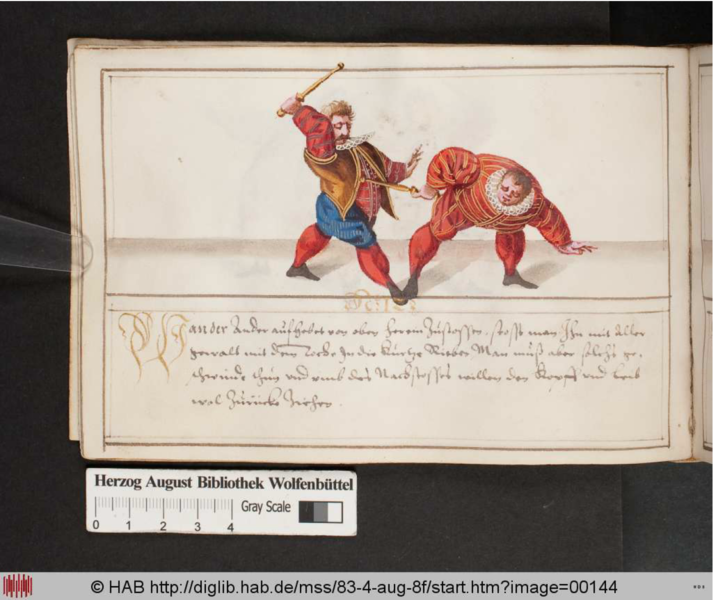 Wan der Ander aufhebet von oben herein Zustossen, stosst man Ihn mit aller
gewalt mit dem Tocke In die kurtze Ribben Man muß aber solchs ge-
schwinde thun vnd vmb des Nachstosses willen den Kopff vnd leib
wol Zurücke Ziehen.
Herzog August Bibliothek Wolfenbüttel
Gray Scale
0 1 2 3 4
© HAB http://diglib.hab.de/mss/83-4-aug-8f/start.htm?image=00144